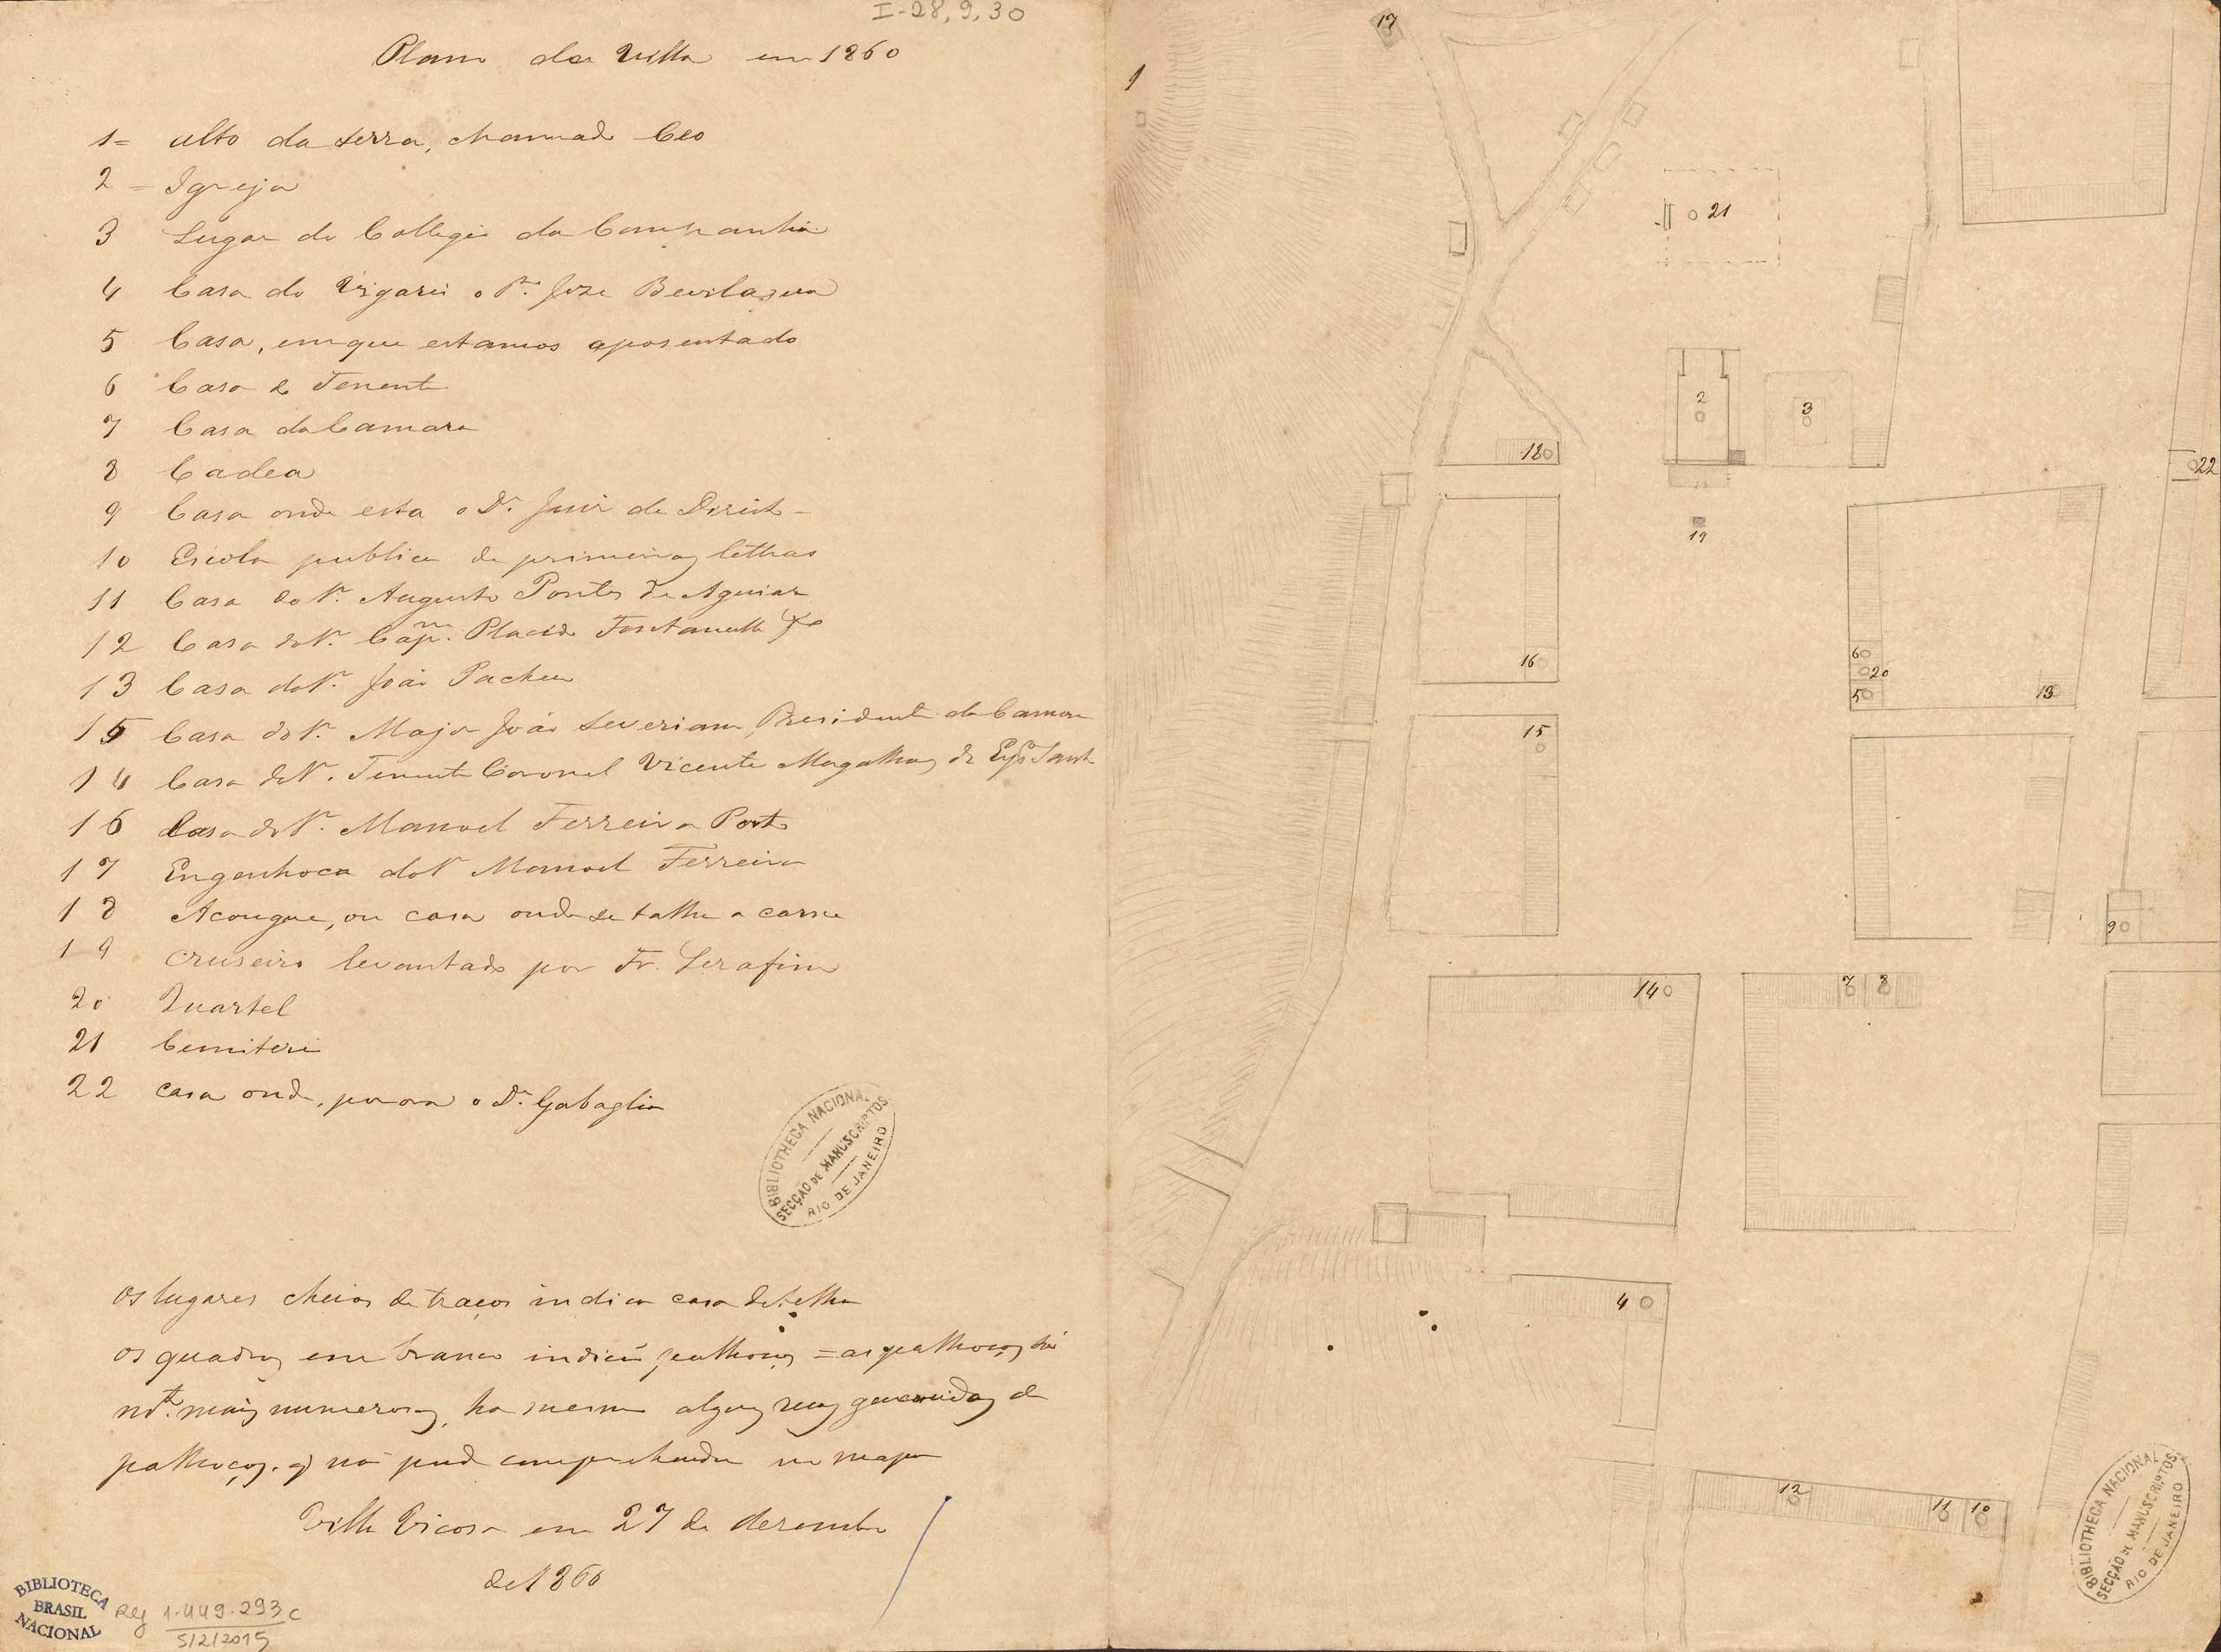 I-28,9,30
Plano da Villa em 1860
1= Alto da serra, chamado Ceo
2 = Igreja
3 Lugar do Collegio da Companhia
4 Casa do Vigario o Pe. Joze Bevilaqua
5 Casa, em que estamos aposentado
6 Casa do Tenente
7 Casa da Camara
8 Cadea
9 Casa onde esta o Dr. Juiz de Direito
10 Escola publica de primeiras lettras
11 Casa do Sr. Augusto Pontes de Aguiar
12 Casa do Sr. Capm. Placido Fontenelle
13 Casa do Sr. João Pacheco
15 Casa do Sr. Major João Severiano, Presidente da Camara
14 Casa do Sr. Tenente Coronel Vicente Magalhães do Espo Santo
16 Casa do Sr. Manoel Ferreira Porto
17 Engenhoca do Sr Manoel Ferreira
18 Acougue, ou casa onde se talha a carne
19 Cruseiro levantado por Fr. Serafim
20 Quartel
21 Cemiterio
22 casa onde, morou o Dr. Gabaglia
BIBLIOTHECA NACIONAL
SECÇÃO DE MANUSCRIPTOS
RIO DE JANEIRO
Os lugares cheios de traços indica casa de telha
os quadros em branco indicão palhoças = as palhoças são
mto. mais numerosas, ha mesmo algumas ruas guarnecidas de
palhoças, q não pude comprehender no mapa
Villa Viçosa em 27 de dezembro
de 1860
BIBLIOTECA
BRASIL
NACIONAL
Reg 1.449.293 C
5/2/2015
17
1
21
2
3
18
22
19
16
6
20
5
13
15
9
14
7
8
4
12
11
10
BIBLIOTHECA NACIONAL
SECÇÃO DE MANUSCRIPTOS
RIO DE JANEIRO